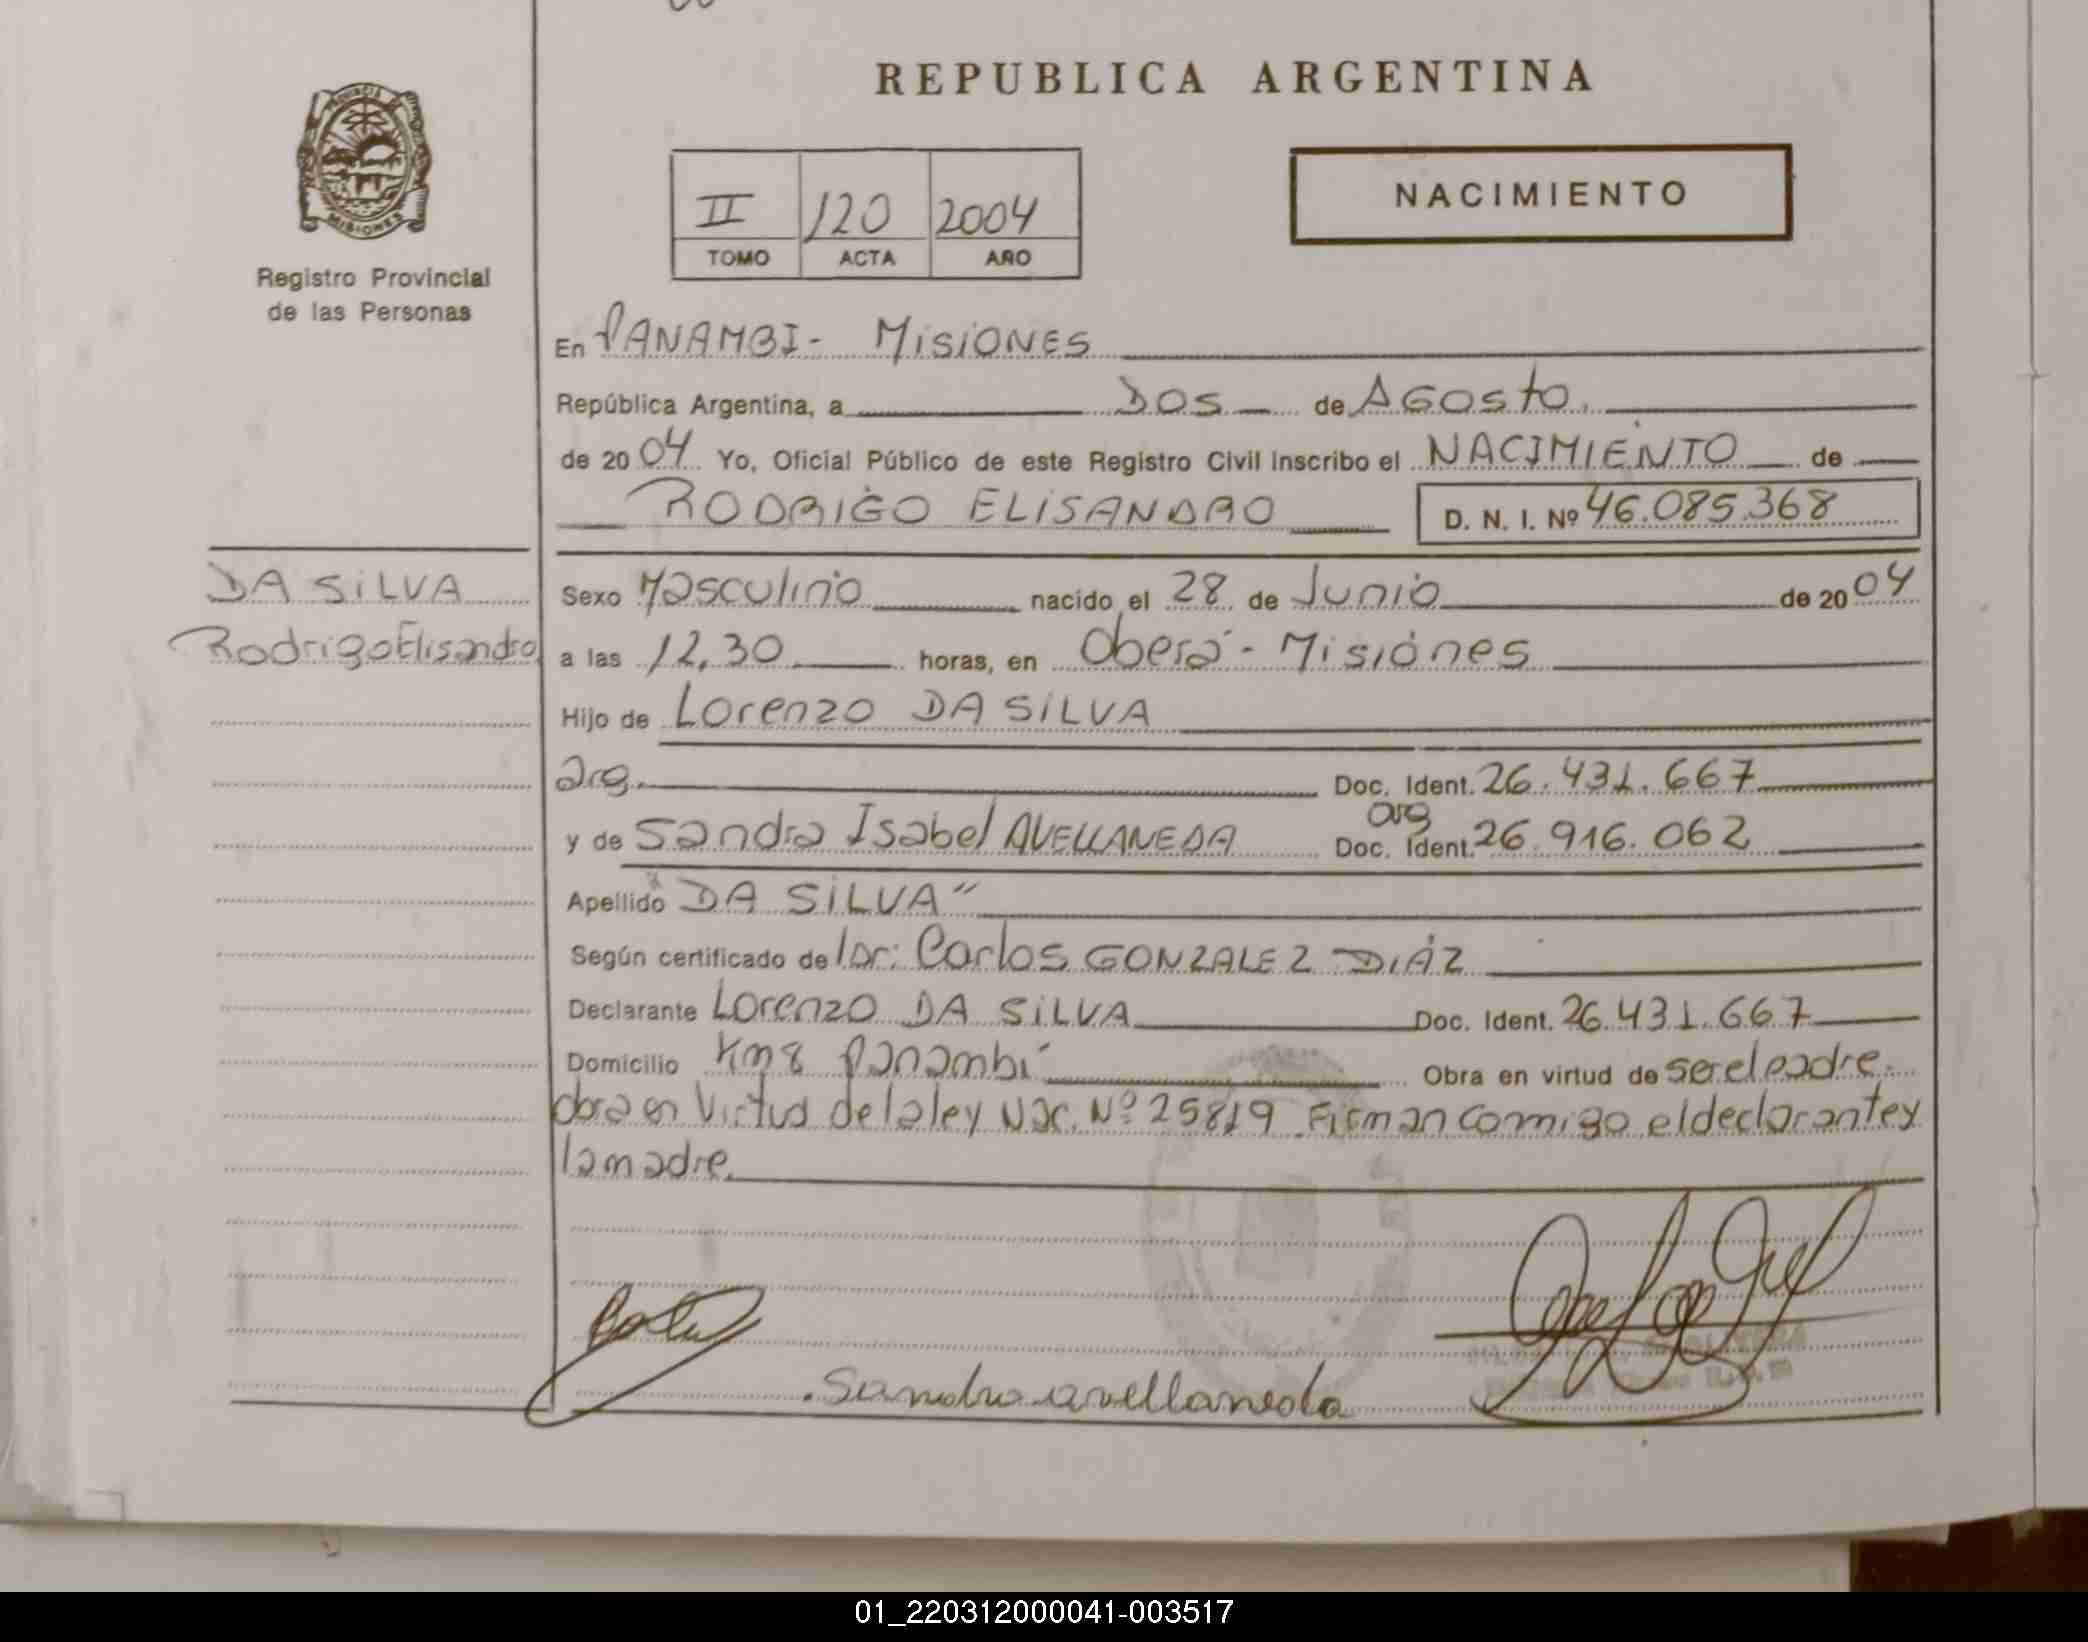 REPUBLICA ARGENTINA
PROVINCIA DE
MISIONES
Registro Provincial
de las Personas
II 120 2004
TOMO ACTA AÑO
NACIMIENTO
En PANAMBI - MISIONES
República Argentina, a DOS de AGOSTO.
de 2004 Yo, Oficial Público de este Registro Civil Inscribo el NACIMIENTO de
RODRIGO ELISANDRO D. N. I. Nº 46.085.368
DA SILVA
Rodrigo Elisandro
Sexo Masculino nacido el 28 de Junio de 2004
a las 12,30 horas, en Oberá - Misiones
Hijo de Lorenzo DA SILVA
arg. Doc. Ident. 26.431.667
arg
y de Sandra Isabel AVELLANEDA Doc. Ident. 26.916.062
Apellido "DA SILVA"
Según certificado de Dr: Carlos GONZALEZ DIÁZ
Declarante Lorenzo DA SILVA Doc. Ident. 26.431.667
Domicilio Km 8 Panambí Obra en virtud de ser el padre.
obra en Virtud de la ley Nac. Nº 25819 Firman comigo el declarante y
la madre.
Sandra avellaneda
01_220312000041-003517